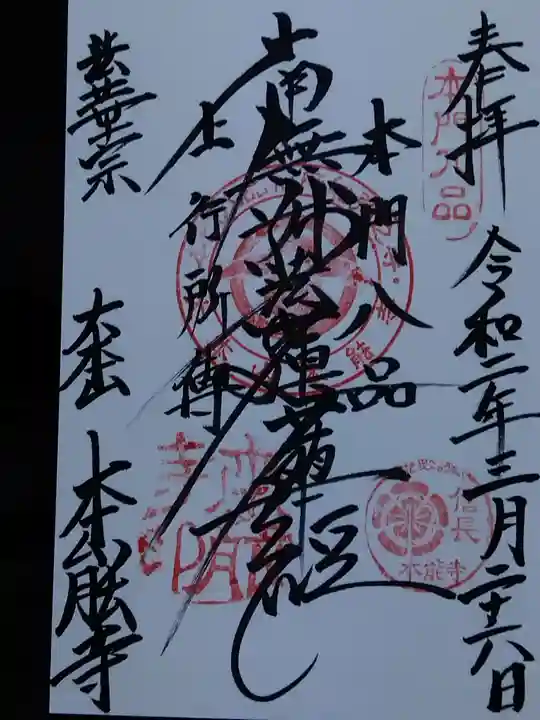 奉拝
令和二年三月二十六日
本門八品
南無妙法蓮華経
上行所傳
法華宗
大本山
本能寺
本門八品
信長
本能寺